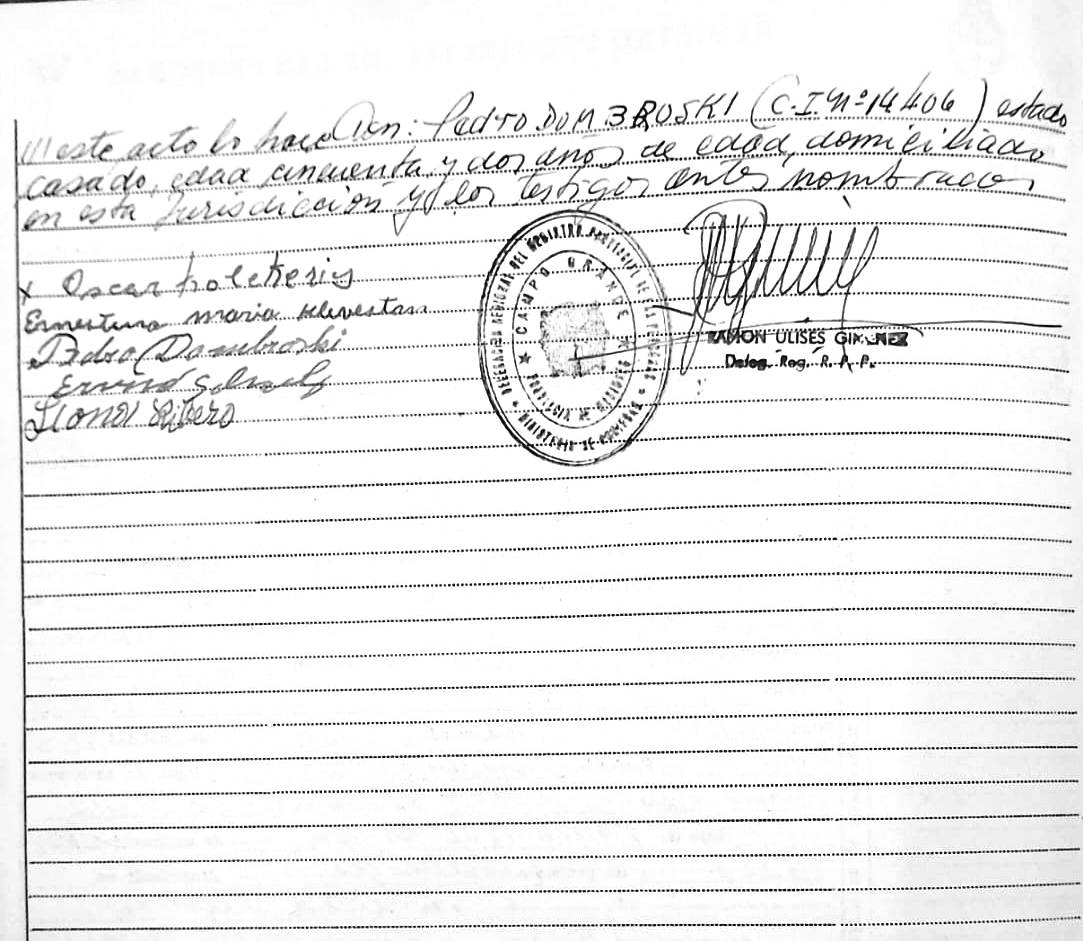 /// este acto lo hace Don: Pedro DOMBROSKI (C.I. Nº 14406) estado
casado, edad cincuenta y dos años de edad, domiciliado
en esta Jurisdicción y los testigos antes nombrados
x Oscar
Ernestina maria
Pedro Dombroski
Ribero
DELEGACION REGIONAL DEL REGISTRO PROVINCIAL DE LAS PERSONAS
CAMPO GRANDE
PROVINCIA DE MISIONES
MINISTERIO DE GOBIERNO
RAMON ULISES GIMENEZ
Deleg. Reg. R. P. P.